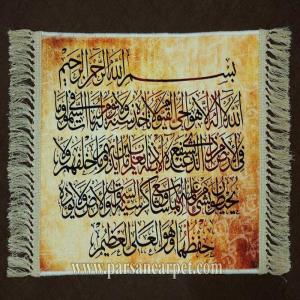 بسم الله الرحمن الرحيم
الله لا إله إلا هو الحي القيوم لا تأخذه سنة ولا نوم له ما في السموات وما
في الأرض من ذا الذي يشفع عنده إلا بإذنه يعلم ما بين أيديهم وما خلفهم ولا
يحيطون بشيء من علمه إلا بما شاء وسع كرسيه السموات والأرض ولا يؤده
حفظهما وهو العلي العظيم
www.parsancarpet.com